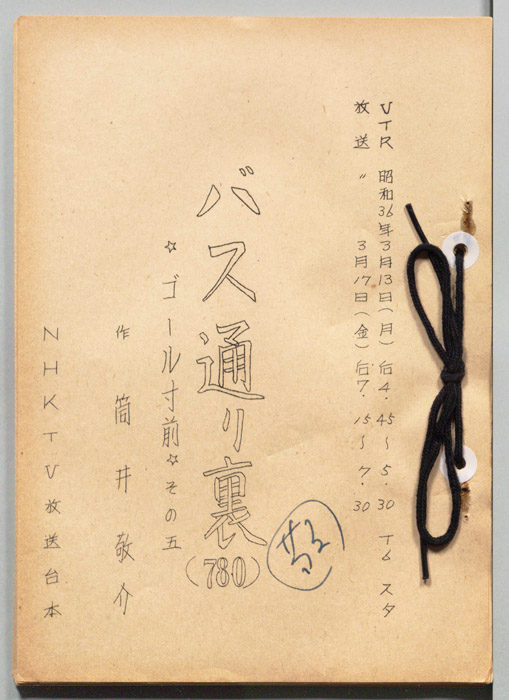 VTR 昭和36年3月13日(月)后4.45〜5.30 T6 スタ
放送 〃 3月17日(金)后7.15〜7.30
バス通り裏(780)
☆ゴール寸前☆その五
作 筒井敬介
NHKTV放送台本